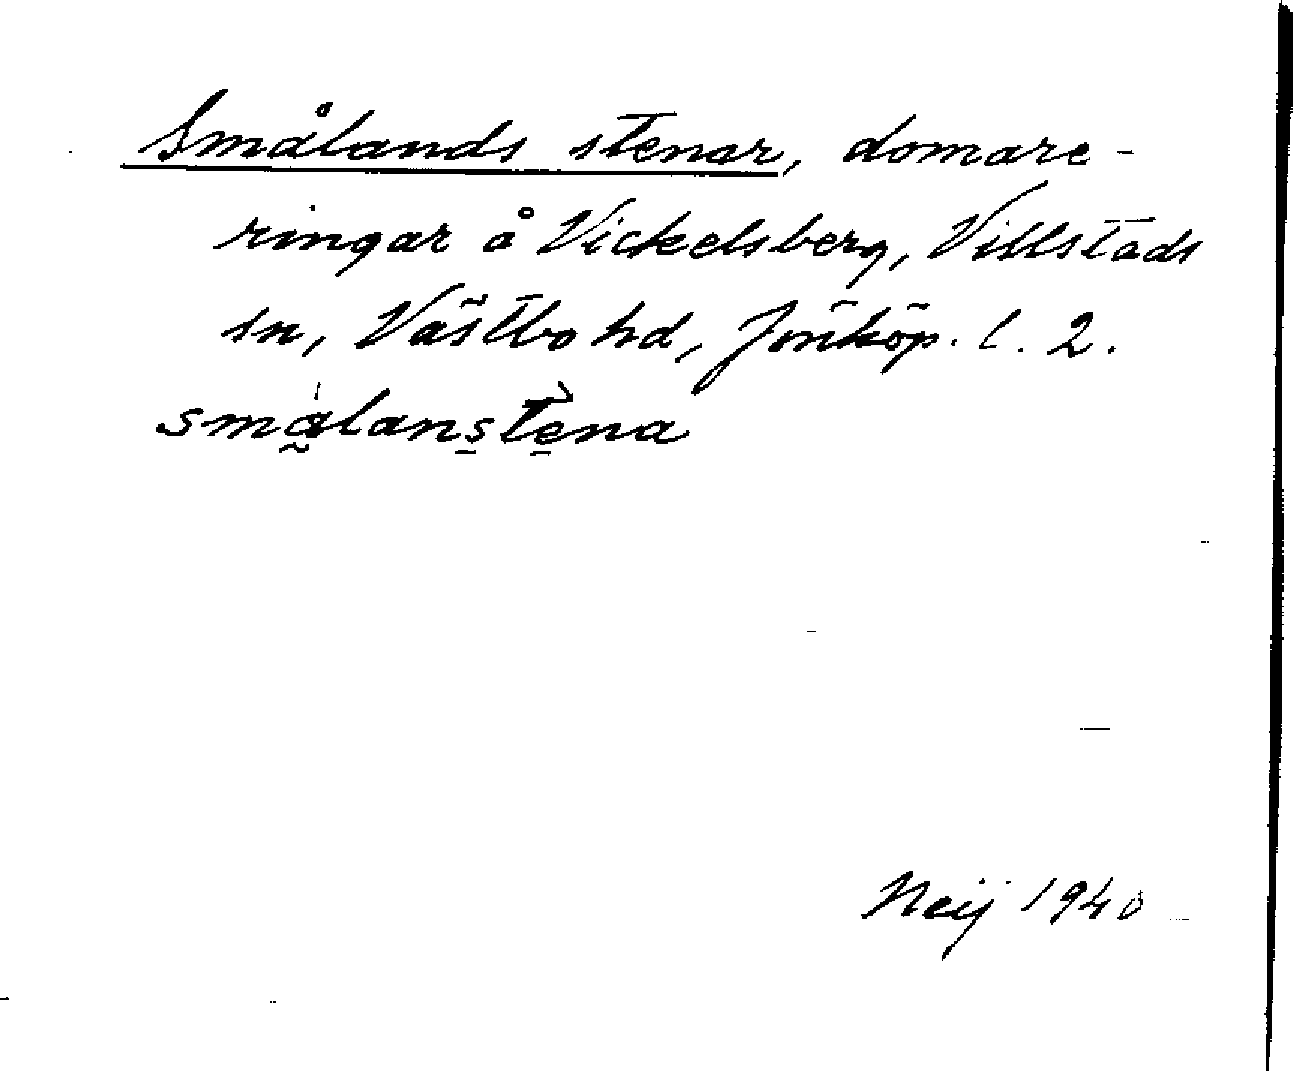 Smålands stenar, domare-
ringar å Vickelsberg, Villstads
sn, Västbo hd, Jönköp. l. 2.
smålanstena
Neij 1940